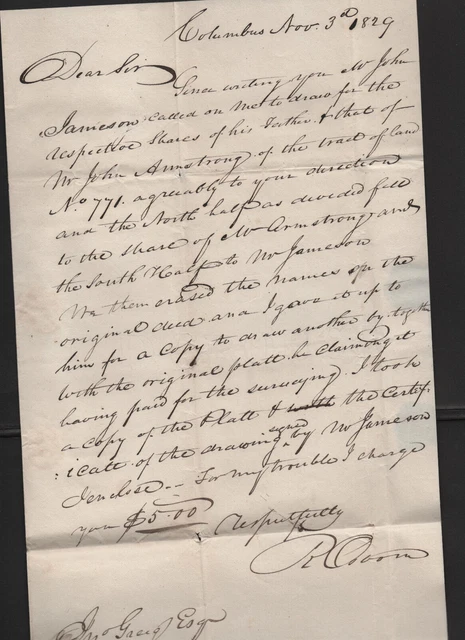 Columbus Nov. 3d 1829
Dear Sir
Since writing you Mr John
Jameson called on me to draw for the
respective Shares of his Father & that of
Mr John Armstrong of the tract of land
No 771. agreeably to your direction
and the North half as divided fell
to the share of Mr Armstrong and
the South Half to Mr Jameson
We then erased the names on the
original deed and I gave it up to
him for a Copy to draw another by together
with the original platt he Claiming it
having paid for the surveying. I took
a Copy of the Platt & the Certif:
:icate of the drawing signed by Mr Jameson
I enclose. -- For my trouble I charge
you $5.00
respectfully
R Osborn
Jno Greig Esqr